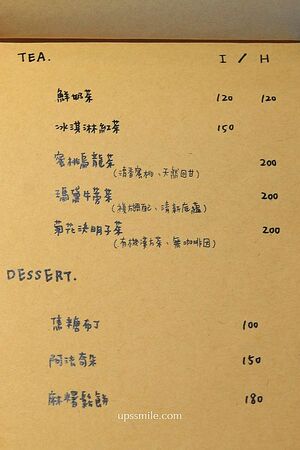 TEA. I / H
鮮奶茶 120 120
冰淇淋紅茶 150
蜜桃烏龍茶 200
(清香蜜桃、天然回甘)
瑪黛牛蒡茶 200
(清新底蘊)
菊花決明子茶 200
(有機漢方茶、無咖啡因)
DESSERT.
焦糖布丁 100
阿法奇朵 150
麻糬鬆餅 180
upssmile.com